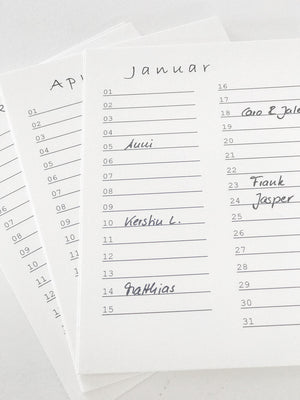 Januar
01
02
03
04
05 Anni
06
07
08
09
10 Kerstin L.
11
12
13
14 Matthias
15
16
17
18 Caro & Jale
19
20
21
22
23 Frank
24 Jasper
25
26
27
28
29
30
31
Ap
01
02
03
04
05
06
07
08
09
10
11
12
13
14
15